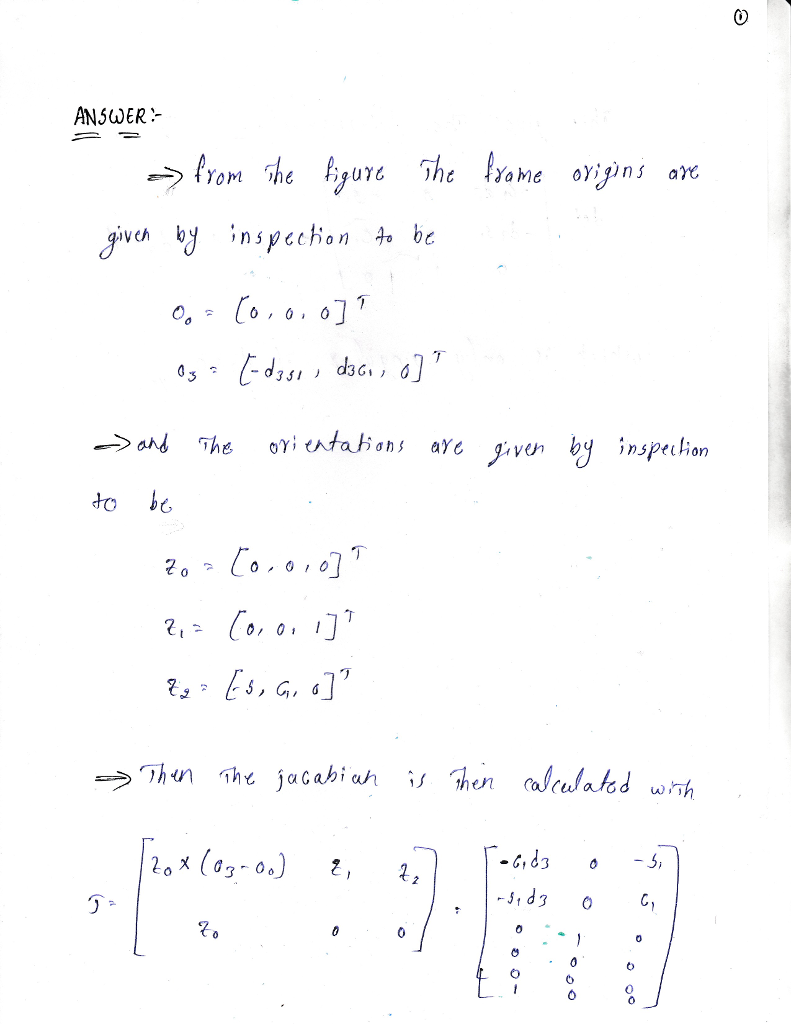 ①
ANSWER:-
⇒ from the figure the frame origins are
given by inspection to be
O₀ = [0, 0, 0]ᵀ
O₃ = [-d₃s₁, d₃c₁, 0]ᵀ
⇒ and the orientations are given by inspection
to be
z₀ = [0, 0, 0]ᵀ
z₁ = [0, 0, 1]ᵀ
z₂ = [-s, c₁, 0]ᵀ
⇒ Then the jacabian is then calculated with
J = [z₀ × (o₃-o₀) z₁ z₂ = [-c₁d₃ 0 -s₁
z₀ 0 0] -s₁d₃ 0 c₁
0 1 0
0 0 0
0 0 0
1 0 0]